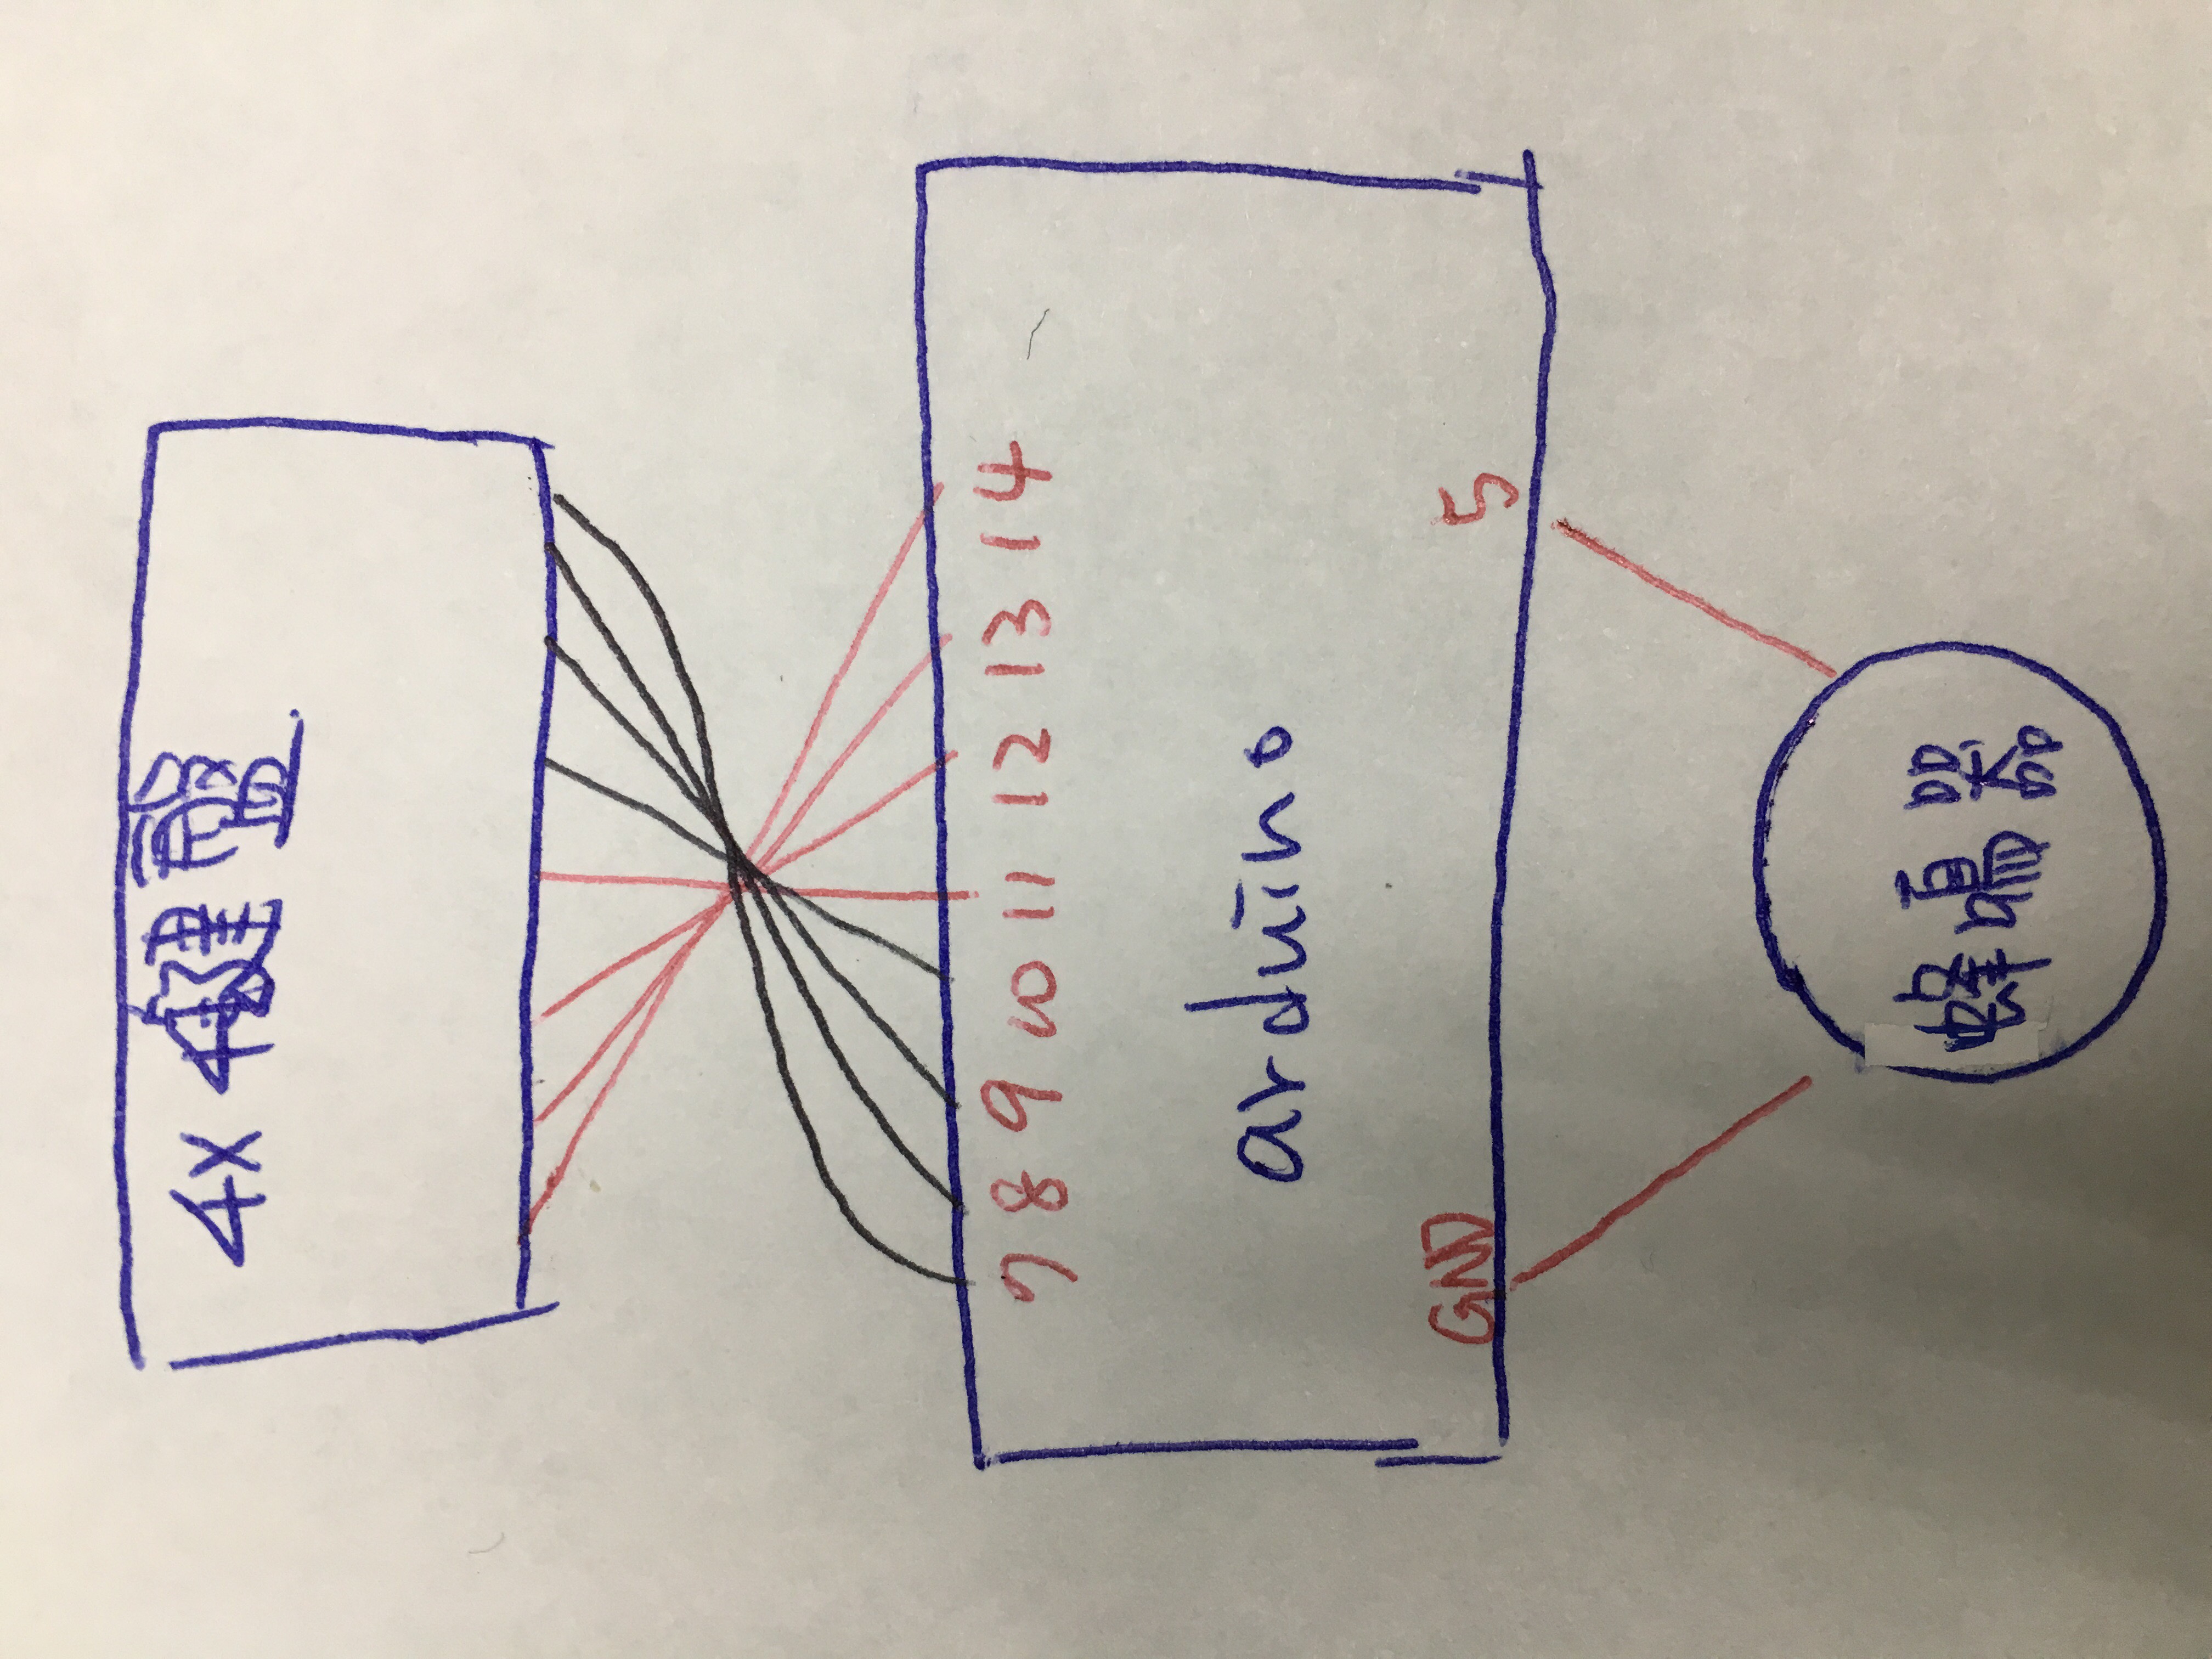 4X4鍵盤
7 8 9 10 11 12 13 14
arduino
GND 5
蜂鳴器